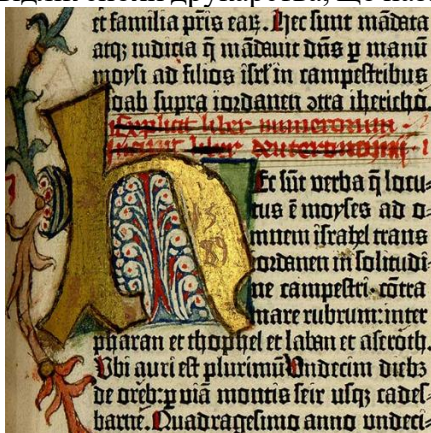 et familia pr̄is eaꝝ. Hec sunt mādata
atq; iudicia q̄ mādauit dn̄s p manū
moysi ad filios isrl̄ in campestribus
moab supra iordanen ↄtra ihericho.
Explicit liber numerorum
Incipit liber deuteronomij
Hec sūt verba q̄ locu-
tus ē moyses ad o-
mnem israhel trans
iordanen in solitudi-
ne campestri· cōtra
mare rubrum: inter
pharan et thophel et laban et aseroth.
Vbi auri est plurimū Vndecim diebꝫ
de oreb: p viā montis seir usqꝫ cades-
barne. Quadragesimo anno undeci-